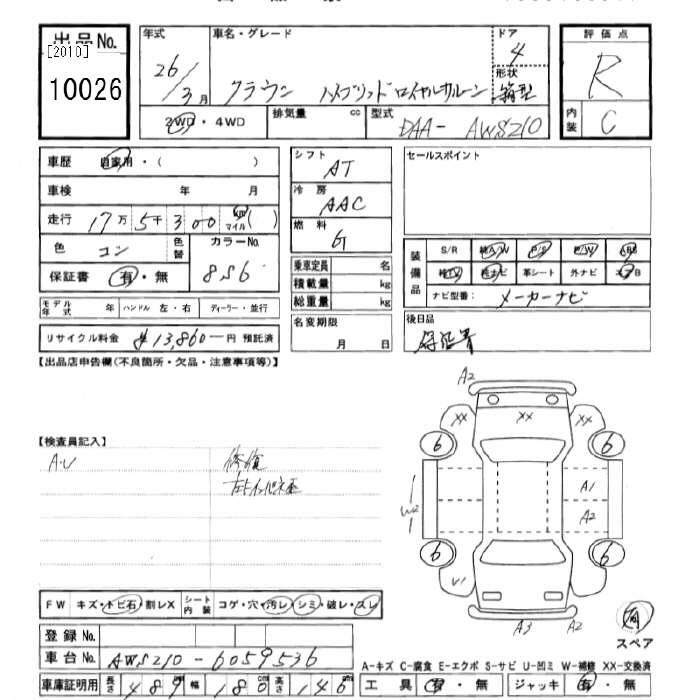 出品No.
[2010]
10026
年式
26/3月
車名・グレード
クラウン ハイブリッド ロイヤルサルーン
ドア
4
形状
箱型
評価点
R
内装
C
2WD・4WD
排気量 cc
型式
DAA-AWS210
車歴 自家用・( )
車検 年 月
走行 17万5千300 km マイル( )
色 コン
色替
カラーNo.
8S6
保証書 有・無
モデル年式 年 ハンドル 左・右 ディーラー・並行
リサイクル料金 ¥13,860 円 預託済
シフト
AT
冷房
AAC
燃料
G
乗車定員 名
積載量 kg
総重量 kg
名変期限
月 日
セールスポイント
装備品
S/R 純A/W P/S P/W ABS
純TV 純ナビ 革シート 外ナビ エアB
ナビ型番: メーカーナビ
後日品
保証書
【出品店申告欄(不良箇所・欠品・注意事項等)】
【検査員記入】
A・U
修復
A2
XX XX XX
6 6
W2
A1
A2
6 6
U1
A3 A2
有
スペア
FW キズ・トビ石・割レX
シート内装 コゲ・穴・汚レ・シミ・破レ・スレ
登録No.
車台No. AWS210-6059536
車庫証明用 長さ 489 幅 180 高さ 146
A-キズ C-腐食 E-エクボ S-サビ U-凹ミ W-補修 XX-交換済
工具 有・無 ジャッキ 有・無